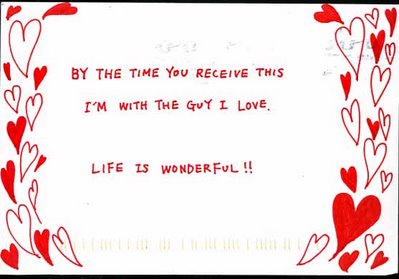 BY THE TIME YOU RECEIVE THIS
I'M WITH THE GUY I LOVE.
LIFE IS WONDERFUL!!